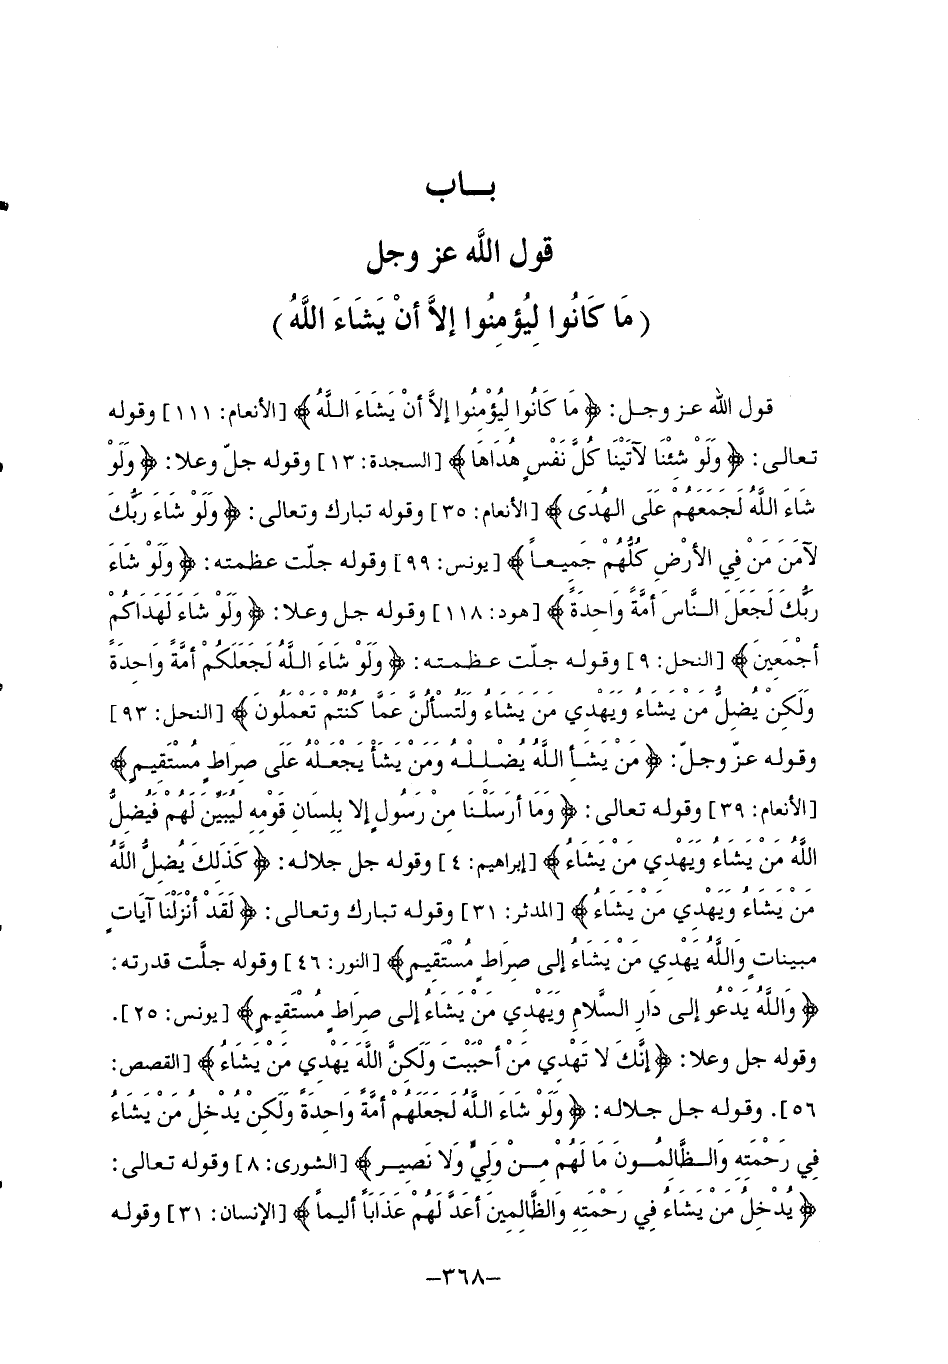 بـــاب
قول اللَّه عز وجل
(مَا كَانُوا لِيُؤمِنُوا إلاَّ أنْ يَشَاءَ اللَّهُ)
قول الله عـز وجـل: ﴿ مَا كَانُوا لِيُؤْمِنُوا إلاَّ أنْ يَشَاءَ اللَّهُ ﴾ [الأنعام: ١١١] وقوله
تعالى: ﴿ وَلَوْ شِئْنَا لآتَيْنَا كُلَّ نَفْسٍ هُدَاهَا ﴾ [السجدة: ١٣] وقوله جلّ وعلا: ﴿ وَلَوْ
شَاءَ اللَّهُ لَجَمَعَهُمْ عَلَى الهُدَى ﴾ [الأنعام: ٣٥] وقوله تبارك وتعالى: ﴿ وَلَوْ شَاءَ رَبُّكَ
لآمَنَ مَنْ فِي الأرْضِ كُلُّهُمْ جَمِيعـاً ﴾ [يونس: ٩٩] وقوله جلّت عظمته: ﴿ وَلَوْ شَاءَ
رَبُّكَ لَجَعَلَ النَّاسَ أمَّةً وَاحِدَةً ﴾ [هود: ١١٨] وقوله جل وعلا: ﴿ وَلَوْ شَاءَ لَهَدَاكُمْ
أجْمَعِينَ ﴾ [النحل: ٩] وقولـه جلّت عـظمـتـه: ﴿ وَلَوْ شَاءَ اللَّهُ لَجَعَلَكُم أمَّةً وَاحِدَةً
وَلَكِنْ يُضِلُّ مَنْ يَشَاءُ وَيَهْدِي مَن يَشَاءُ وَلَتُسألُنَّ عَمَّا كُنْتُم تَعْمَلُونَ ﴾ [النحل: ٩٣]
وقـولـه عـزّ وجـلّ: ﴿ مَنْ يَشَـأ اللَّهُ يُضْـلِـلْـهُ وَمَنْ يَشَأ يَجْعَلْهُ عَلَى صِرَاطٍ مُسْتَقِيـمٍ ﴾
[الأنعام: ٣٩] وقولـه تعـالى: ﴿ وَمَا أرسَلْـنَا مِنْ رَسُولٍ إلا بِلِسَانِ قَوْمِهِ لِيُبَيِّنَ لَهُمْ فَيُضِلُّ
اللَّهُ مَنْ يَشَاءُ وَيَهْدِي مَنْ يَشَاءُ ﴾ [إبراهيم: ٤] وقوله جل جلاله: ﴿ كَذَلِكَ يُضِلُّ اللَّهُ
مَنْ يَشَاءُ وَيَهْدِي مَنْ يَشَاء ﴾ [المدثر: ٣١] وقوله تبارك وتعالى: ﴿ لَقَدْ أنْزَلْنَا آيَاتٍ
مبينات وَاللَّهُ يَهْدِي مَنْ يَشَاءُ إلى صِرَاطٍ مُسْتَقِيمٍ ﴾ [النور: ٤٦] وقوله جلَّت قدرته:
﴿ وَاللَّهُ يَدْعُو إلى دَارِ السَّلَامِ وَيَهْدِي مَنْ يَشَاءُ إلى صِرَاطٍ مُسْتَقِيمٍ ﴾ [يونس: ٢٥].
وقوله جل وعلا: ﴿ إنَّكَ لا تَهْدِي مَنْ أحْبَبْتَ وَلَكِنَّ اللَّهَ يَهْدِي مَنْ يَشَاءُ ﴾ [القصص:
٥٦]. وقـولـه جـل جـلالـه: ﴿ وَلَوْ شَاءَ اللَّهُ لَجَعَلَهُمْ أمَّةً وَاحِدَةً وَلَكِنْ يُدْخِلُ مَنْ يَشَاءُ
فِي رَحْمَتِهِ وَالـظَّالِمُـونَ مَا لَهُمْ مِـنْ وَلِيٍّ وَلَا نَصِيـر ﴾ [الشورى: ٨] وقولـه تـعـالى:
﴿ يُدْخِلُ مَنْ يَشَاءُ فِي رَحْمَتِهِ وَالظَّالِمِينَ أعَدَّ لَهُمْ عَذَابَاً أليماً ﴾ [الإنسان: ٣١] وقولـه
–٣٦٨–